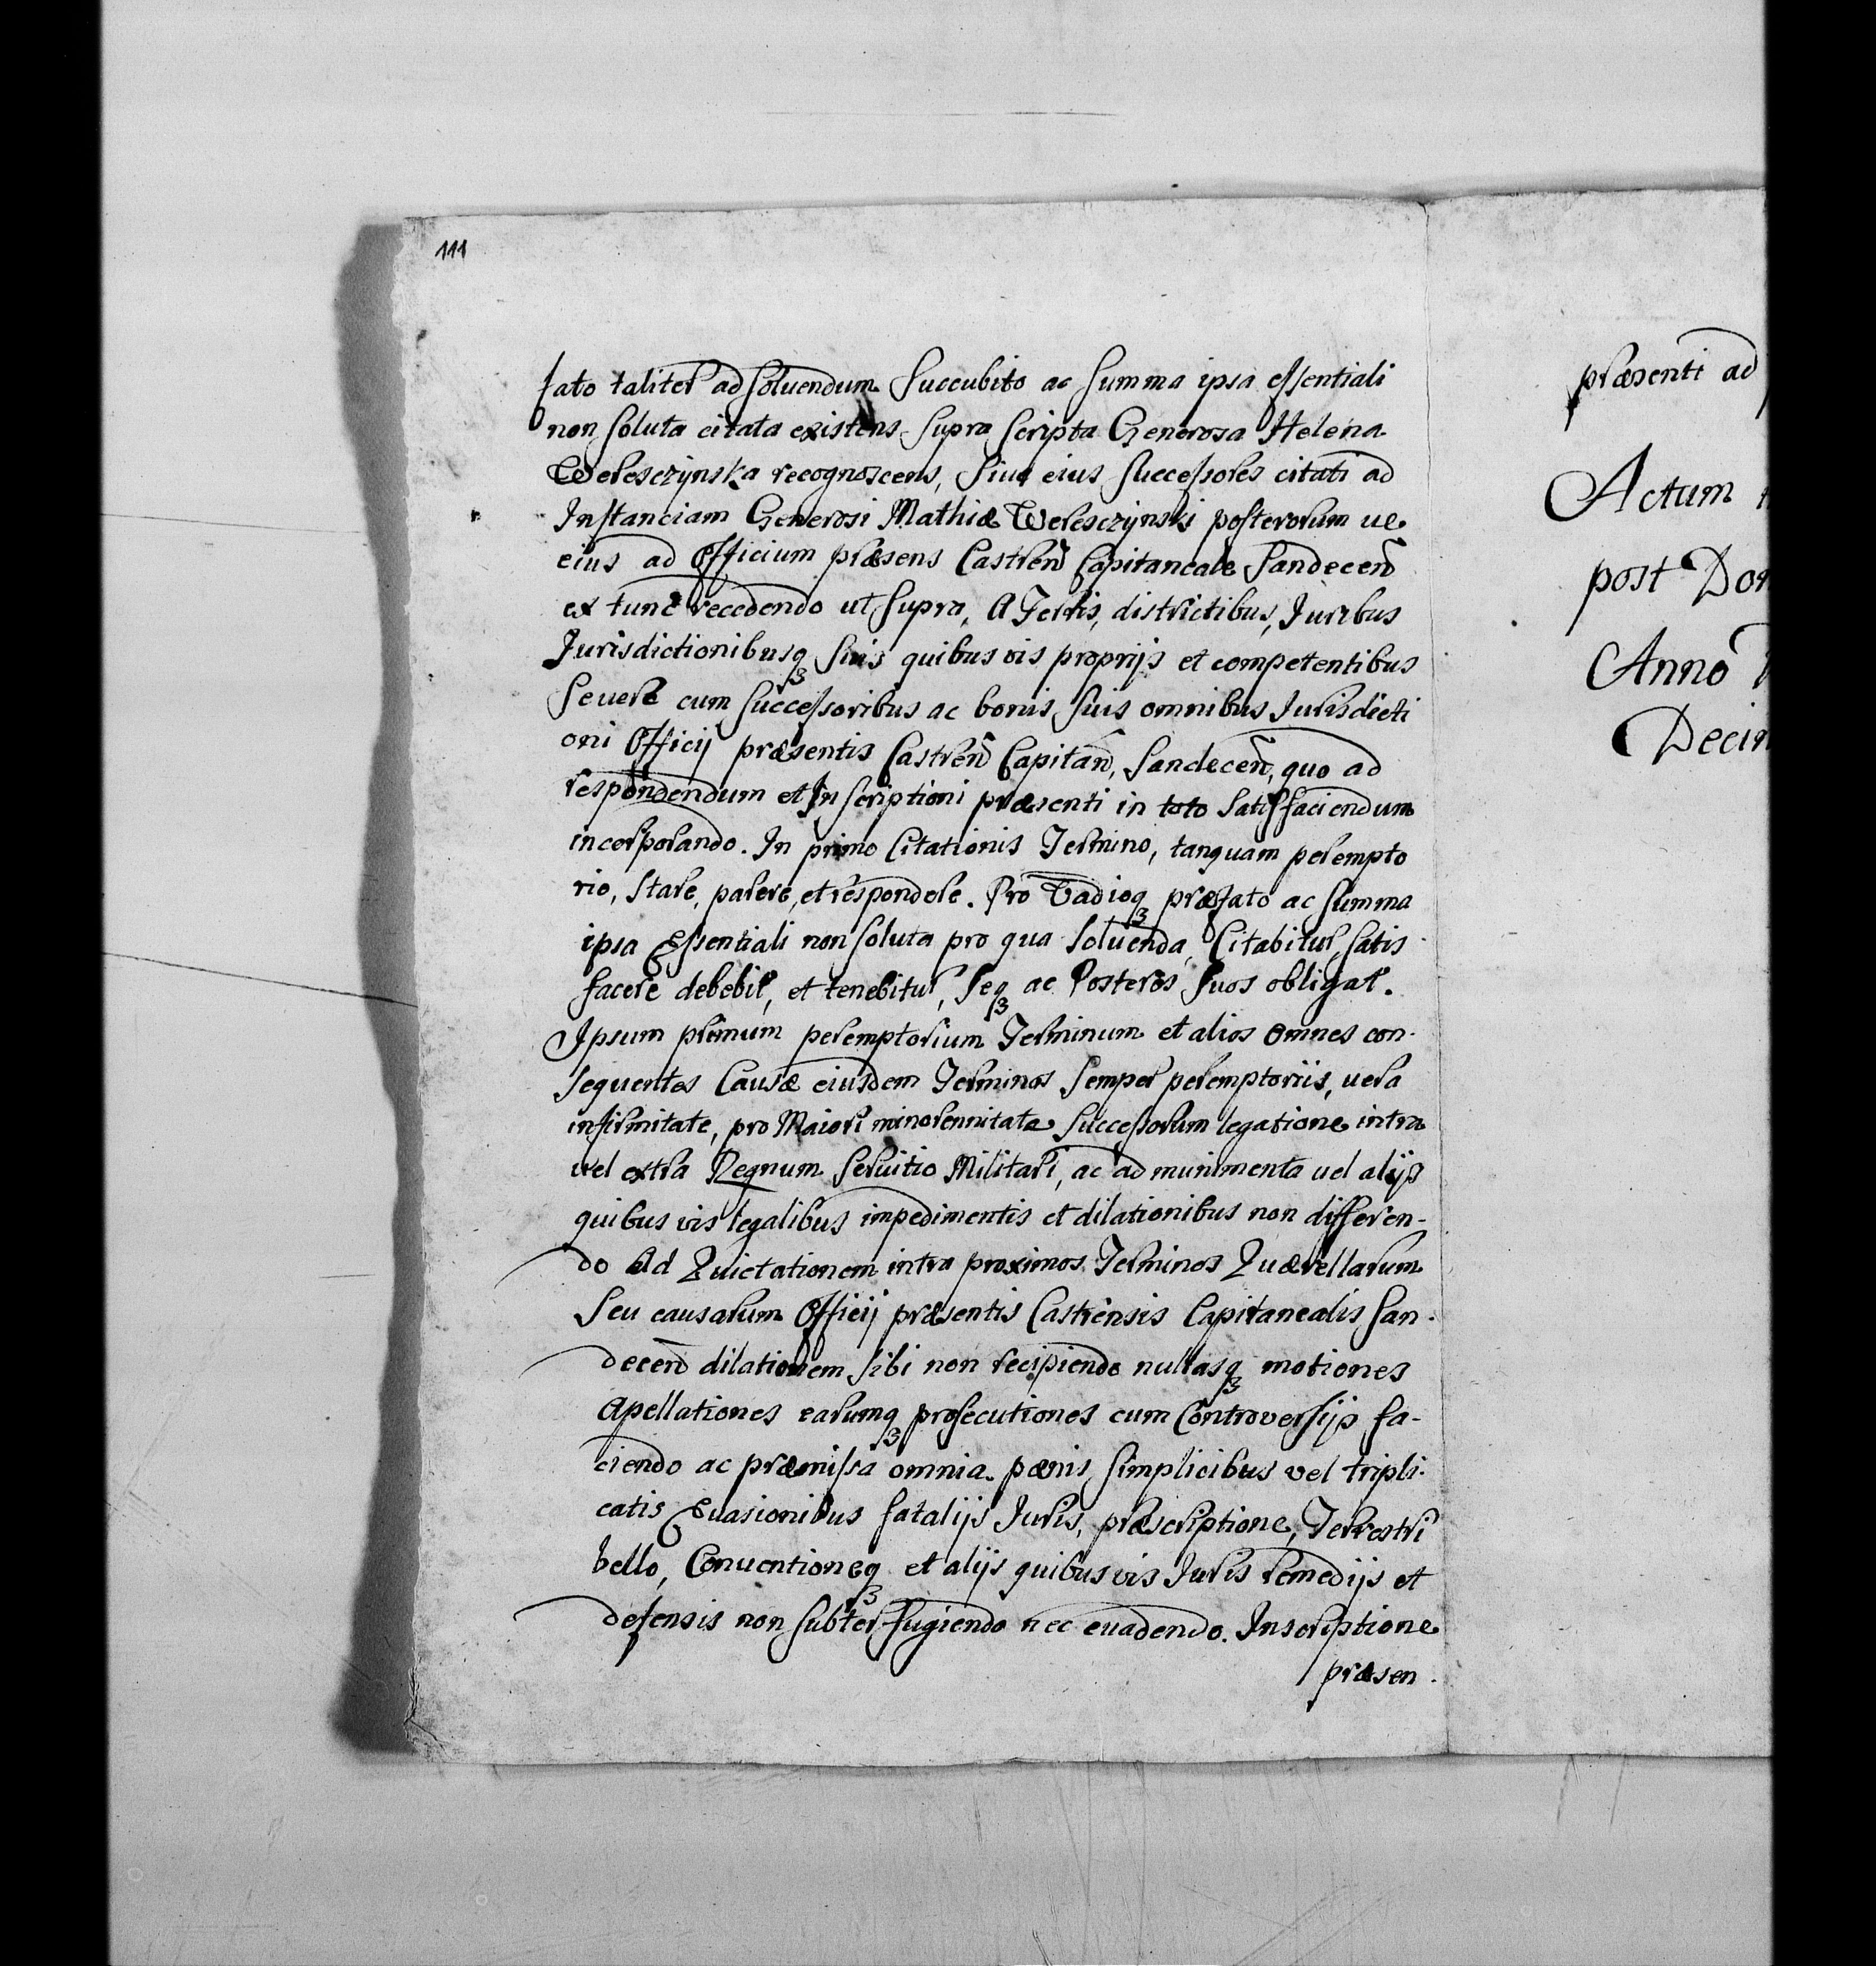 111
fato taliter ad soluendum Succubito ac Summa ipsa essentiali
non soluta citata existens supra scripta Generosa Helena
Welesczynska recognoscens, siue eius Successores citati ad
Instanciam Generosi Mathiæ Welesczynski posterorum ue
eius ad Officium præsens Castren Capitaneale Sandecen
ex tunc recedendo ut supra, a Terris, districtibus, Juribus
Jurisdictionibusq3 suis quibus vis proprijs et competentibus
Seuere cum Successoribus ac bonis suis omnibus Jurisdicti
oni Officij præsentis Castren Capitan, Sandecen, quo ad
respondendum et Inscriptioni præsenti in toto satisfaciendum
incorporando. In primo Citationis Termino, tanquam perempto
rio, stare, parere, et respondere. Pro Vadioq3 præfato ac summa
ipsa Essentiali non soluta pro qua soluenda, Citabitur, satis
facere debebit, et tenebitur, Seq3 ac Posteros suos obligat.
Ipsum primum peremptorium Terminum et alios omnes con-
sequentes Causæ eiusdem Terminos semper peremptoriis, uera
infirmitate, pro Maiori minorennitate Successorum legatione intra
uel extra Regnum seruitio Militari, ac ad munimenta uel alijs
quibus vis legalibus impedimentis et dilationibus non differen-
do Ad Quictationem intra proximos Terminos Quærellarum
Seu causarum Officij præsentis Castrensis Capitanealis San-
decen dilationem sibi non recipiendo nullasq3 motiones
Apellationes earumq3 prosecutiones cum Controversijs fa-
ciendo ac præmissa omnia pœnis simplicibus vel tripli-
catis Euasionibus fatalijs Juris, præscriptione, Terrestri
bello, Conuentioneq3 et alijs quibus vis Juris remedijs et
defensis non subterfugiendo nec euadendo. Inscriptione
præsen-
præsenti ad
Actum
post Dom
Anno
Decim